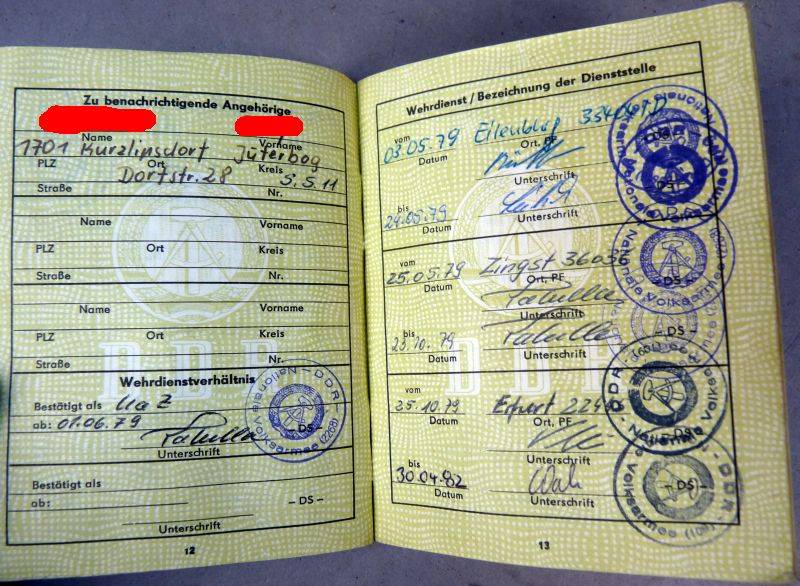 Zu benachrichtigende Angehörige
Name Vorname
1701 Kurzlipsdorf Jüterbog
PLZ Ort Kreis
Dorfstr. 28 S. S. 11
Straße Nr.
Name Vorname
PLZ Ort Kreis
Straße Nr.
Name Vorname
PLZ Ort Kreis
Straße Nr.
DDR
Wehrdienstverhältnis
Bestätigt als UaZ
ab: 01.06.79
– DS –
Unterschrift
DDR – Nationale Volksarmee (2268)
Bestätigt als
ab:
– DS –
Unterschrift
12
Wehrdienst / Bezeichnung der Dienststelle
vom
03.05.79 Eilenburg
Datum Ort, PF
Unterschrift
bis
24.05.79
Datum Unterschrift
– DS –
Nationale Volksarmee
vom
25.05.79 Zingst 36036
Datum Ort, PF
Unterschrift
bis
23.10.79
Datum Unterschrift
– DS –
DDR
vom
25.10.79 Erfurt
Datum Ort, PF
Unterschrift
bis
30.04.82
Datum Unterschrift
– DS –
DDR
Volksarmee
13